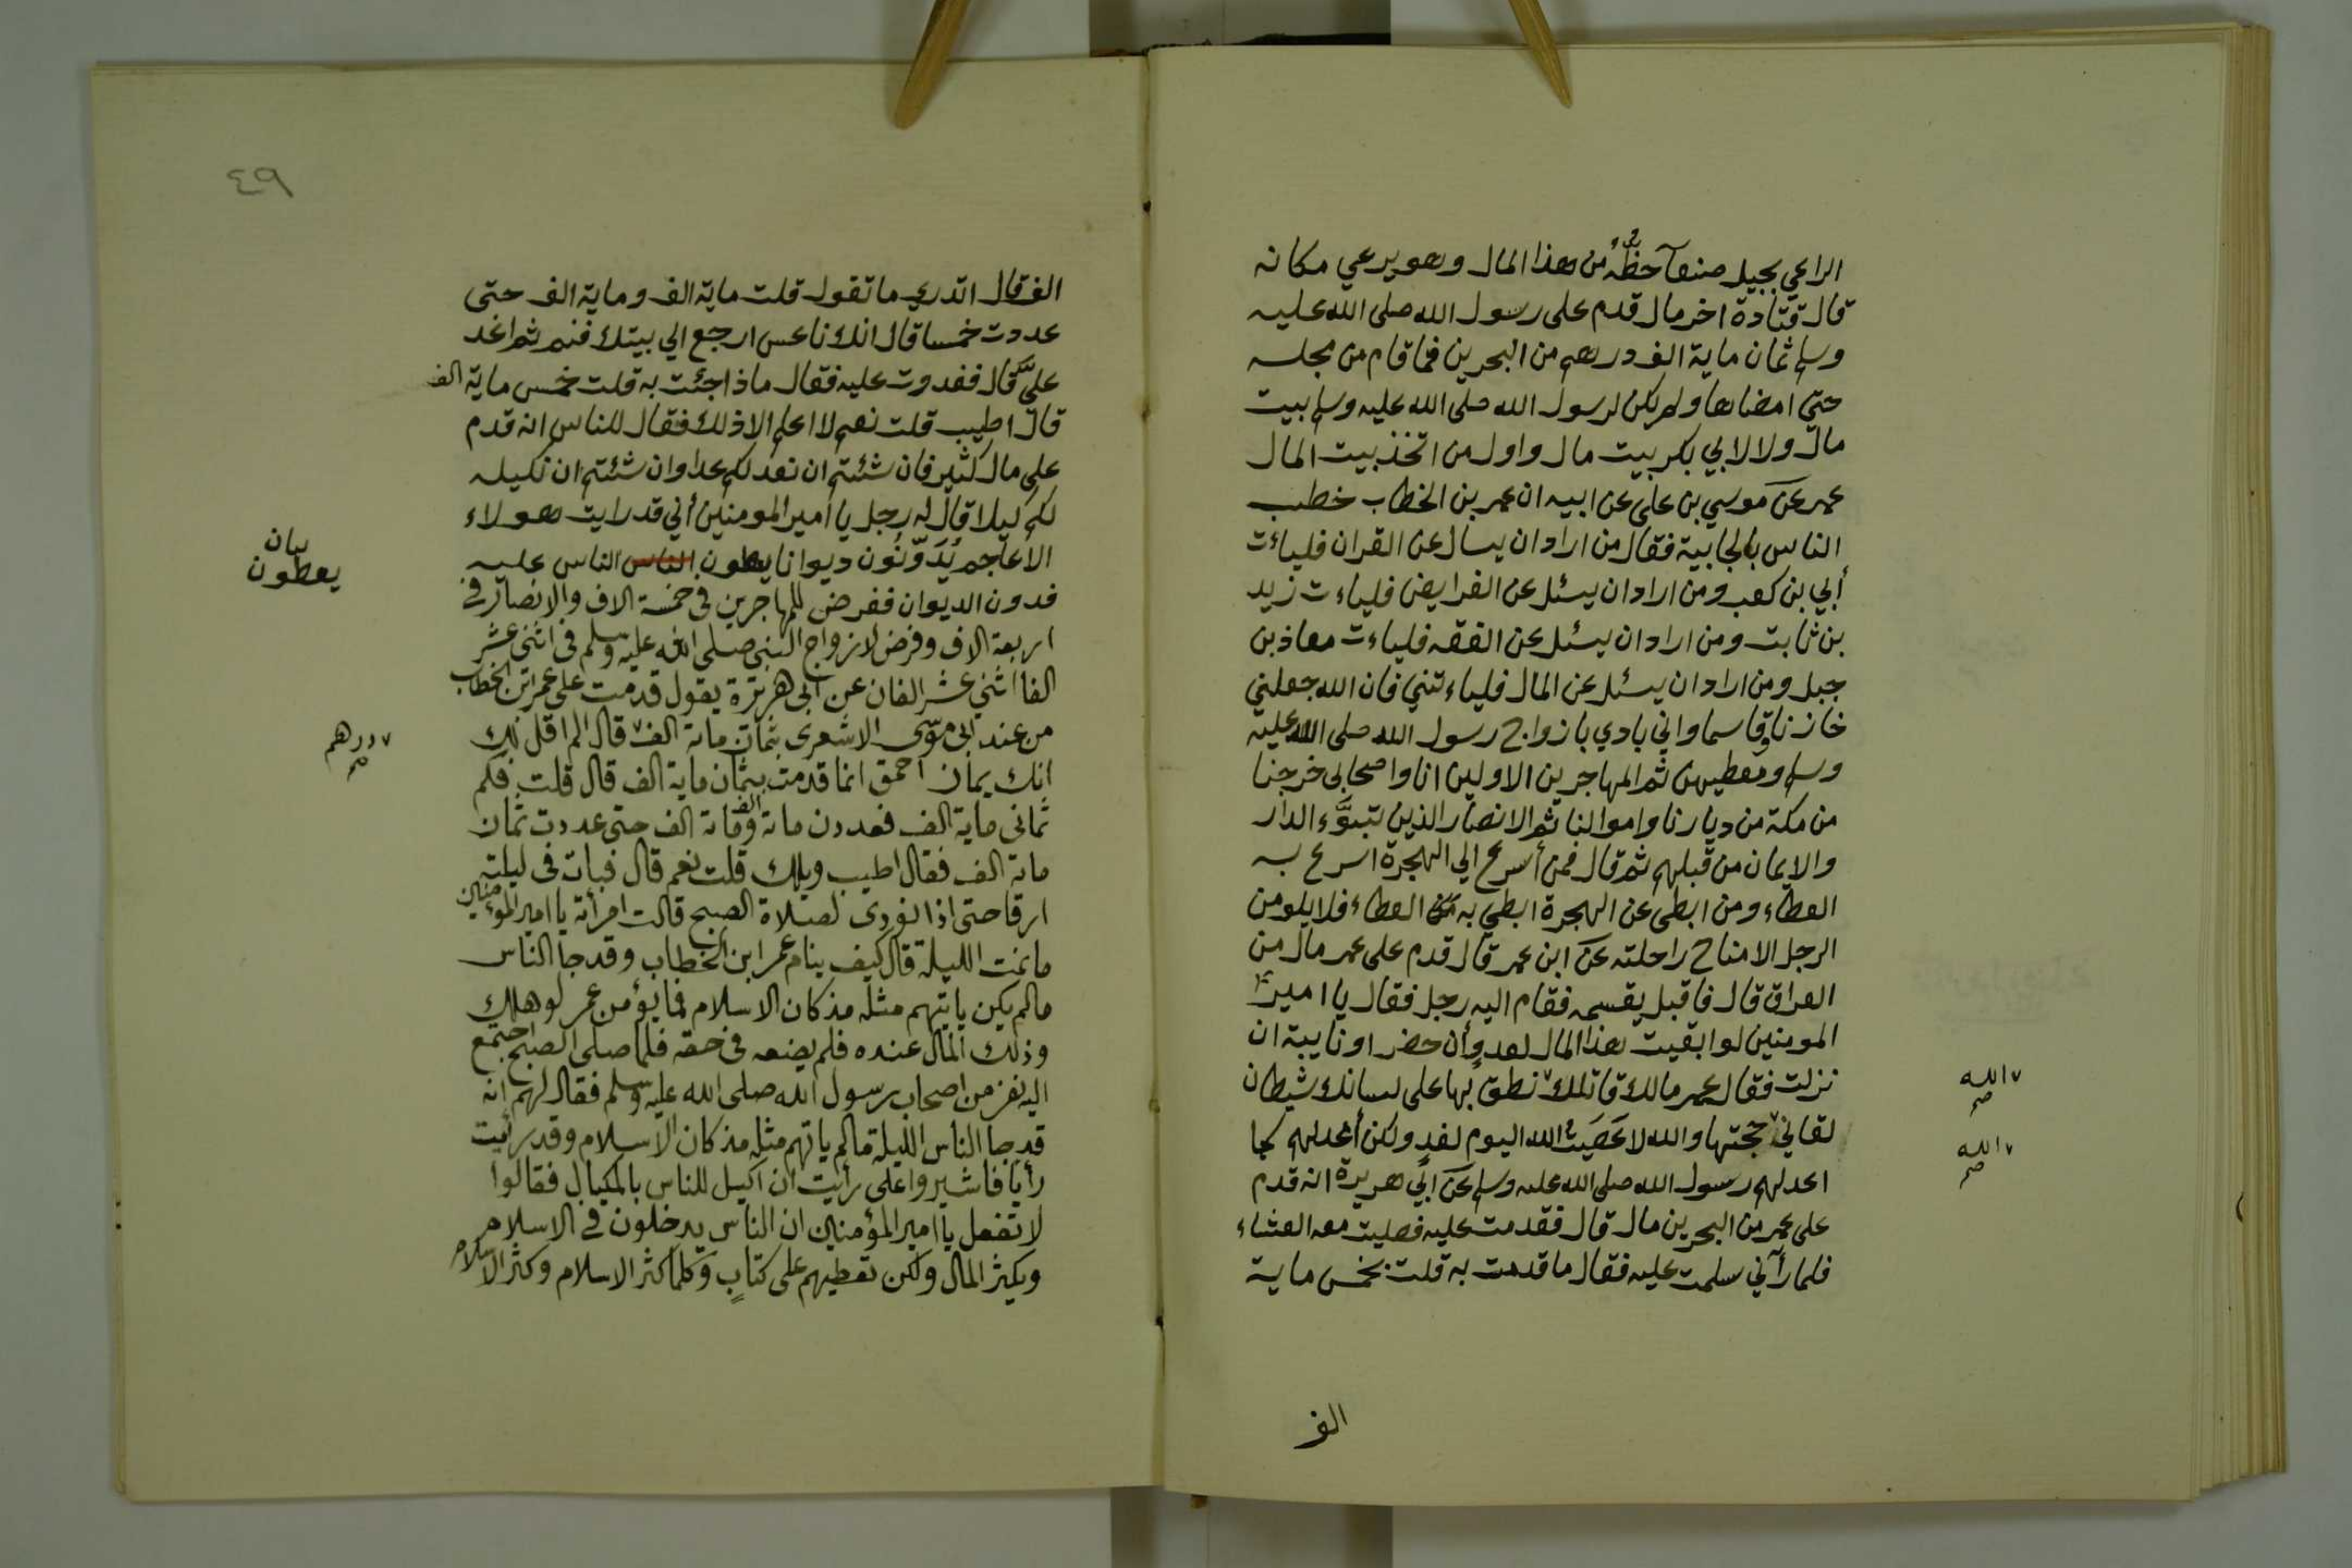 الراعي بجبل صنعآ حظّهُ من هذا المال وهو يرعي مكانه
قال قتادة اخر مال قدم على رسول الله صلى الله عليه
وسلم ثمان ماية الف درهم من البحرين فما قام من مجلسه
حتى امضاها ولم يكن لرسول الله صلى الله عليه وسلم بيت
مال ولا لابي بكر بيت مال واول من اتخذ بيت المال
عمر عن موسي بن على عن ابيه ان عمر بن الخطاب خطب
الناس بالجابية فقال من اراد ان يسال عن القران فلياءت
أبي بن كعب ومن اراد ان يسئل عن الفرايض فلياءت زيد
بن ثابت ومن اراد ان يسئل عن الفقه فلياءت معاذ بن
جبل ومن اراد ان يسئل عن المال فلياءتني فان الله جعلني
خازنا وقاسما واني بادي بازواج رسول الله صلى الله عليه
وسلم ومعطيهن ثم المهاجرين الاولين انا واصحابى خرجنا
من مكة من ديارنا واموالنا ثم الانصار الذين تبوَّء الدار
والايمان من قبلهم ثم قال فمن أسرع الي الهجرة اسرع به
العطاء ومن ابطى عن الهجرة ابطي به العطاء فلا يلومن
الرجل الا مناح راحلته عن ابن عمر قال قدم على عمر مال من
العراق قال فاقبل يقسمه فقام اليه رجل فقال يا امير
المومنين لو ابقيت هذا المال لعدوٍ أن حضر او نايبة ان
نزلت فقال عمر مالك قاتلك نطق بها على لسانك شيطان
٧ الله صح
لقاني حجتها والله لا عَصَيتُ الله اليوم لغدٍ ولكن أعد لهم كما
٧ الله صح
اعد لهم رسول الله صلى الله عليه وسلم عن ابي هريرة انه قدم
على عمر من البحرين مال قال فقدمت عليه فصليت معه العشاء
فلما رآني سلمت عليه فقال ما قدمت به قلت بخمس ماية
الف
٤٩
الف قال اتدري ما تقول قلت ماية الف وماية الف حتى
عددت خمسا قال انك ناعس ارجع الي بيتك فنم ثم اغد
عليَّ قال فغدوت عليه فقال ماذا جئت به قلت خمس ماية الف
قال اطيب قلت نعم لا اعلم الا ذلك فقال للناس انه قدم
على مال كثير فان شئتم ان نعد لكم عدا وان شئتم ان نكيله
لكم كيلا قال له رجل يا امير المومنين أني قد رايت هولاء
الاعاجم يُدَوِّنُون ديوانا يعطون الناس الناس عليه
بيان
يعطون
فدون الديوان ففرض للمهاجرين فى خمسة الاف والانصار فى
اربعة الاف وفرض لازواج النبى صلى الله عليه وسلم فى اثنى عشر
الفا اثني عشر الفان عن ابى هريرة يقول قدمت على عمر ابن الخطاب
من عند ابى موسى الاشعرى بثمان ماية الف ٧ قال الم اقل لك
٧ درهم صح
انك يمان احمق انما قدمت بثمان ماية الف قال قلت فكم
ثمانى ماية الف فعددن ماية الف وماية الف حتى عددت ثمان
ماية الف فقال اطيب ويلك قلت نعم قال فبات فى ليلته
ارقا حتى اذا نودى لصلاة الصبح قالت امرأته يا امير المؤمنين
ما نمت الليلة قال كيف ينام عمر ابن الخطاب وقد جا الناس
ما لم يكن ياتيهم مثله مذ كان الاسلام فما يؤمن عمر لو هلك
وذلك المال عنده فلم يضعه فى حقه فلما صلى الصبح اجتمع
اليه نفر من اصحاب رسول الله صلى الله عليه وسلم فقال لهم انه
قد جآ الناس الليلة ما لم ياتهم مثله مذ كان الاسلام وقد رأيت
رأيا فاشيروا على رأيت ان اكيل للناس بالمكيال فقالوا
لا تفعل يا امير المؤمنين ان الناس يدخلون فى الاسلام
ويكثر المال ولكن تعطيهم على كتابٍ وكلما كثر الاسلام وكثر الاسلام